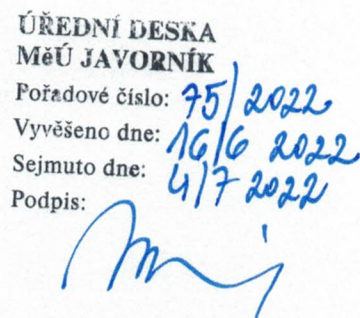 ÚŘEDNÍ DESKA
MěÚ JAVORNÍK
Pořadové číslo: 75/2022
Vyvěšeno dne: 16/6 2022
Sejmuto dne: 4/7 2022
Podpis: